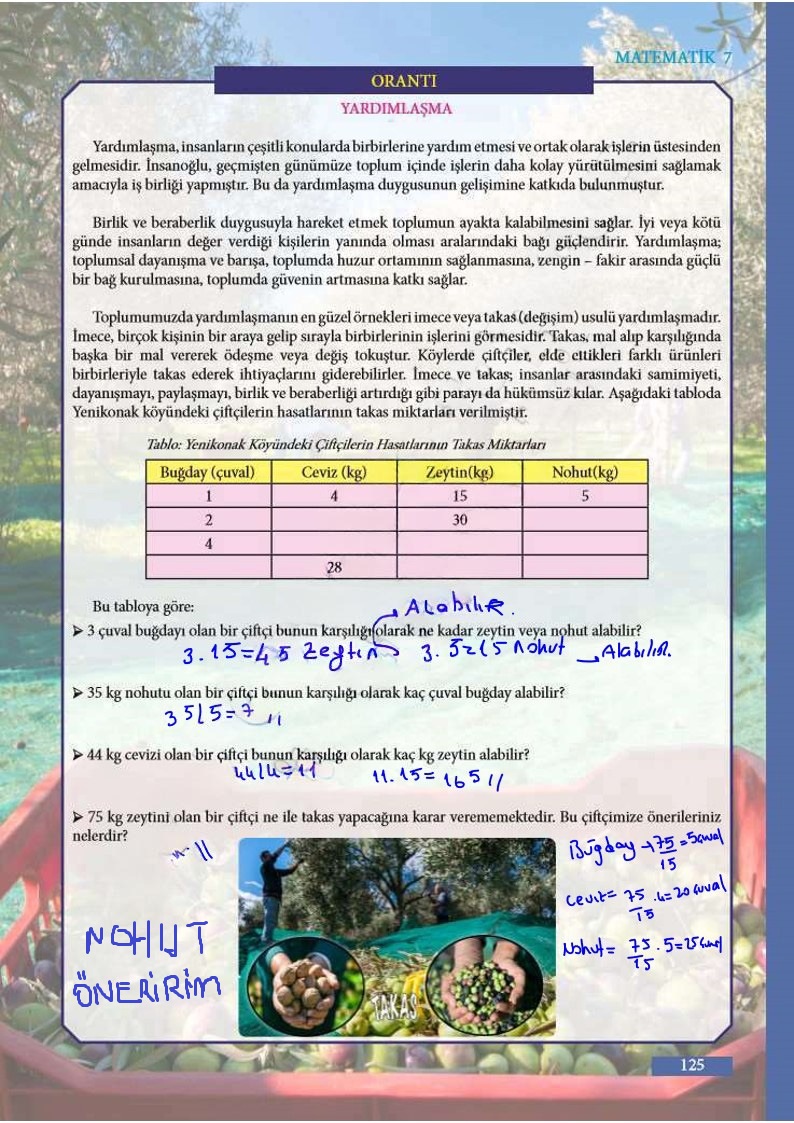 MATEMATİK 7
ORANTI
YARDIMLAŞMA
Yardımlaşma, insanların çeşitli konularda birbirlerine yardım etmesi ve ortak olarak işlerin üstesinden
gelmesidir. İnsanoğlu, geçmişten günümüze toplum içinde işlerin daha kolay yürütülmesini sağlamak
amacıyla iş birliği yapmıştır. Bu da yardımlaşma duygusunun gelişimine katkıda bulunmuştur.
Birlik ve beraberlik duygusuyla hareket etmek toplumun ayakta kalabilmesini sağlar. İyi veya kötü
günde insanların değer verdiği kişilerin yanında olması aralarındaki bağı güçlendirir. Yardımlaşma;
toplumsal dayanışma ve barışa, toplumda huzur ortamının sağlanmasına, zengin – fakir arasında güçlü
bir bağ kurulmasına, toplumda güvenin artmasına katkı sağlar.
Toplumumuzda yardımlaşmanın en güzel örnekleri imece veya takas (değişim) usulü yardımlaşmadır.
İmece, birçok kişinin bir araya gelip sırayla birbirlerinin işlerini görmesidir. Takas, mal alıp karşılığında
başka bir mal vererek ödeşme veya değiş tokuştur. Köylerde çiftçiler, elde ettikleri farklı ürünleri
birbirleriyle takas ederek ihtiyaçlarını giderebilirler. İmece ve takas; insanlar arasındaki samimiyeti,
dayanışmayı, paylaşmayı, birlik ve beraberliği artırdığı gibi parayı da hükümsüz kılar. Aşağıdaki tabloda
Yenikonak köyündeki çiftçilerin hasatlarının takas miktarları verilmiştir.
Tablo: Yenikonak Köyündeki Çiftçilerin Hasatlarının Takas Miktarları
Buğday (çuval) Ceviz (kg) Zeytin(kg) Nohut(kg)
1 4 15 5
2 30
4
28
Bu tabloya göre:
Alabilir.
➤ 3 çuval buğdayı olan bir çiftçi bunun karşılığı olarak ne kadar zeytin veya nohut alabilir?
3.15=45 Zeytin 3.5=15 Nohut Alabilir.
➤ 35 kg nohutu olan bir çiftçi bunun karşılığı olarak kaç çuval buğday alabilir?
35/5=7 //
➤ 44 kg cevizi olan bir çiftçi bunun karşılığı olarak kaç kg zeytin alabilir?
44/4=11 11.15=165 //
➤ 75 kg zeytini olan bir çiftçi ne ile takas yapacağına karar verememektedir. Bu çiftçimize önerileriniz
nelerdir?
Buğday → 75/15 = 5 çuval
ceviz = 75/15 .4=20 çuval
Nohut = 75/15 .5=25 çuval
NOHUT
ÖNERİRİM
TAKAS
125